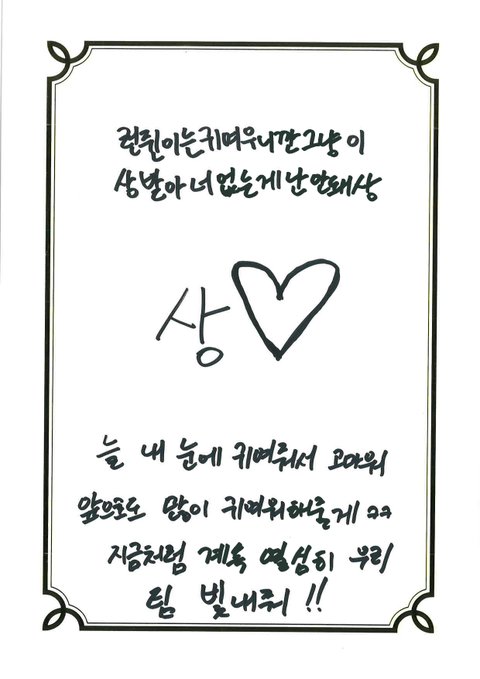 런쥔이는귀여우니깐그냥이
상받아너없는게난안돼상
상♡
늘 내 눈에 귀여워줘서 고마워
앞으로도 많이 귀여워해줄게 ㅋㅋ
지금처럼 계속 열심히 우리
팀 빛내줘!!